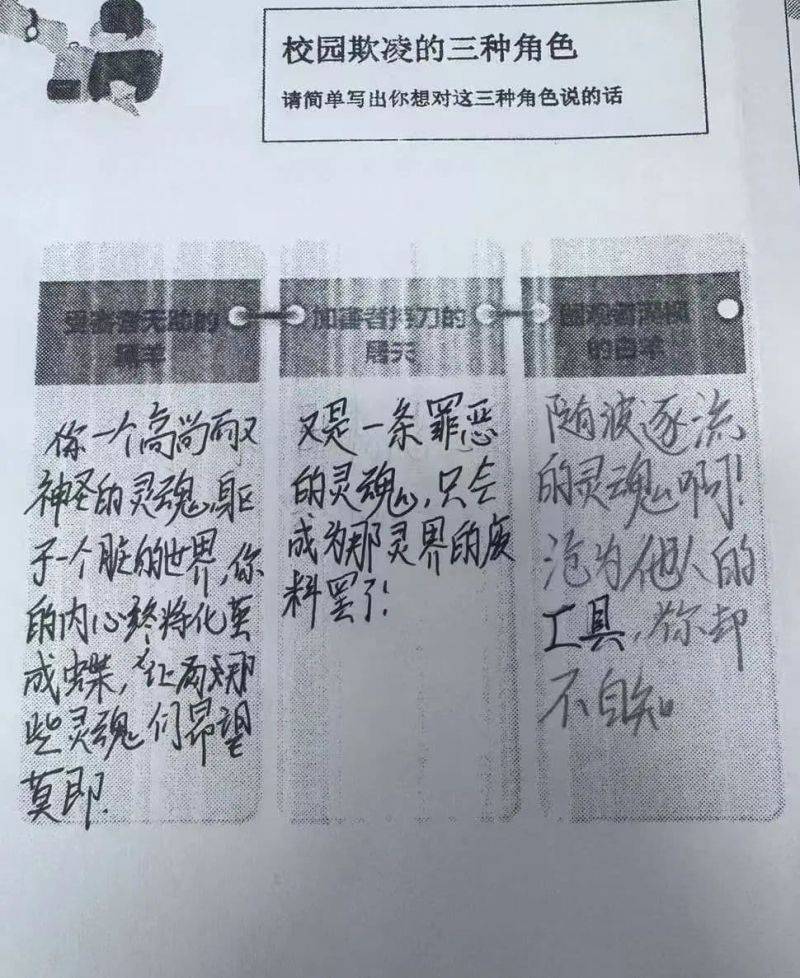 校园欺凌的三种角色
请简单写出你想对这三种角色说的话
受害者无助的
羊
你一个高尚而又
神圣的灵魂,躯
于一个脏的世界,你
的内心终将化茧
成蝶,让那
些灵魂们昂望
莫即.
加害者持刀的
屠夫
又是一条罪恶
的灵魂,只会
成为那灵界的废
料罢了!
围观者漠视
的白羊
随波逐流
的灵魂啊!
沦为他人的
工具,你却
不自知